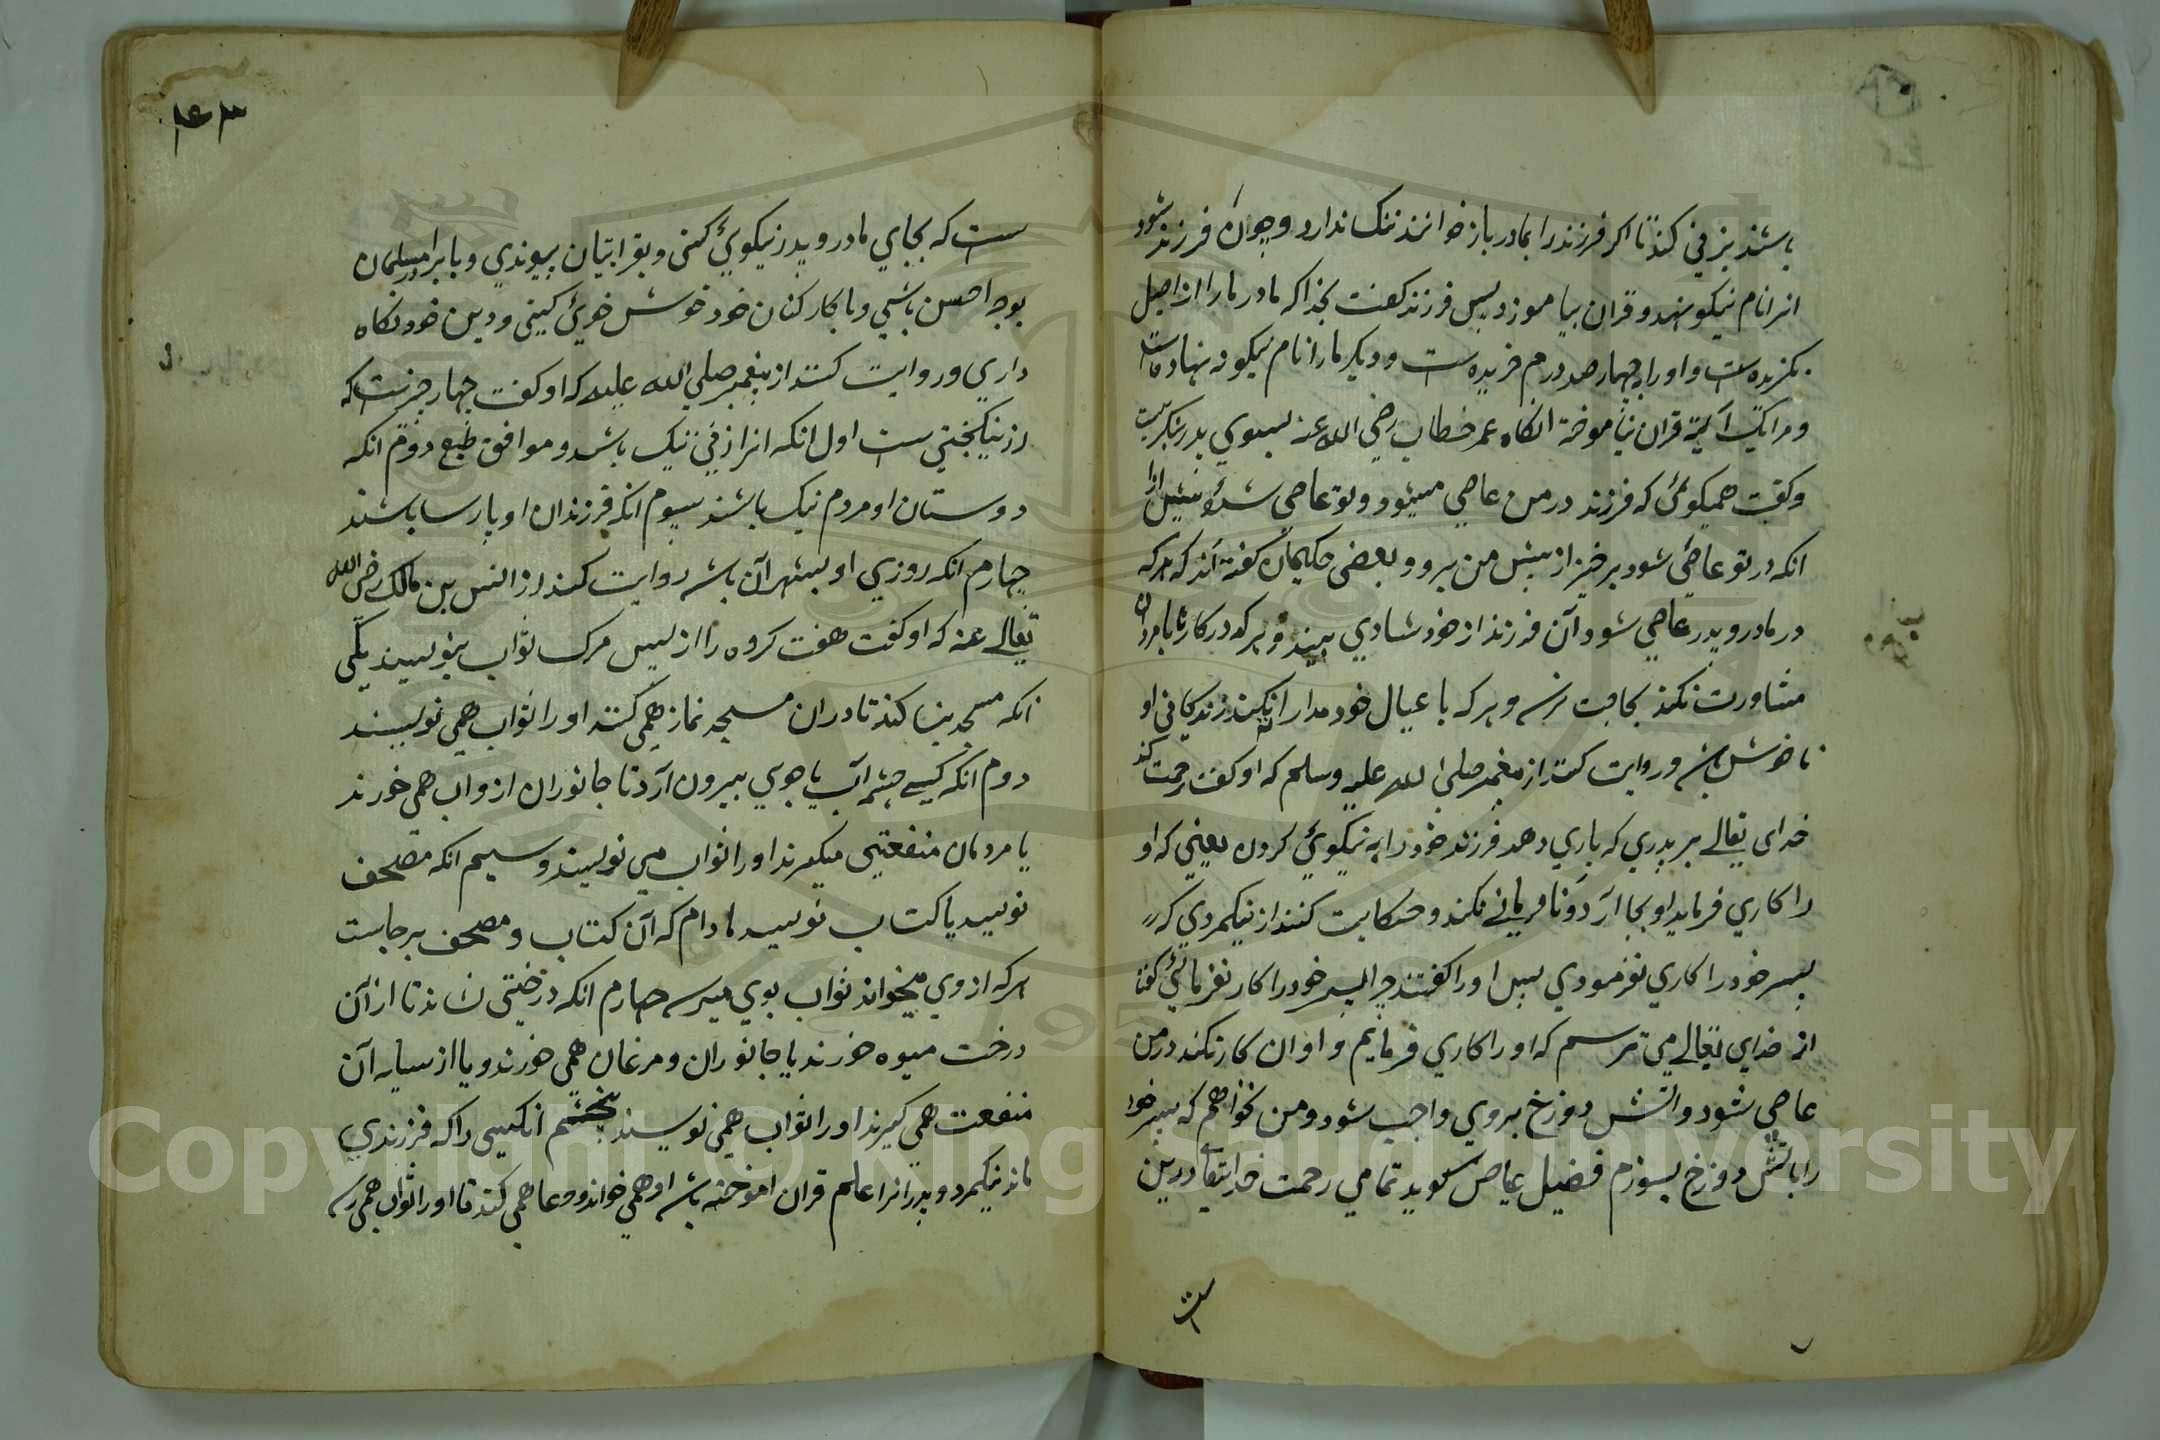 باشند بزنی کند تا اکر فرزند را بمادر باز خوانند ننک ندارد و چون فرزند شود
انرا نام نیکو نهد و قران بیاموزد پس فرزند کفت بخدا که مادر ما را از اصل
نکزیده است و او را بچهار صد درم خریده است و دیکر ما را نام نیکو نه نهاده است
و مرا یک آیة قران نیاموخته انکاه عمر خطاب رضی الله عنه بسوی پدر بنکریست
و کفت همیکوئی که فرزند در من عاصی میشود و تو عاصی شدۀ پیش ازا
انکه در تو عاصی شود برخیز از پیش من برو و بعضی حکیمان کفته اند که هر که
در مادر و پدر عاصی شود آن فرزند از خود شادی نبیند و هر که در کارها با مردان
مشاورت نکند بحاجت نرسد و هر که با عیال خود مدارا نکند زندکانی او
ناخوش باشد و روایت کنند از پیغمبر صلی الله علیه وسلم که او کفت رحمت کند
خدای تعالی بر پدری که یاری دهد فرزند خود را به نیکوئی کردن یعنی که او
را کاری فرماید او بجا آرد و نافرمانی نکند و حکایت کنند از نیکمردی که
پسر خود را کاری نفرمودی پس او را کفتند چرا پسر خود را کار نفرمائی کفتا
از خدای تعالی می ترسم که او را کاری فرمایم و او ان کار نکند در من
عاصی شود و اتش دوزخ بروی واجب شود و من نخواهم که پسر خود
را باتش دوزخ بسوزم فضیل عیاض کوید تمامی رحمت خدایتعالی درین
ست
۱۴۳
ست که بجای مادر و پدر نیکوئی کنی و بقرابتیان پیوندی و با برادر مسلمان
بوجه احسن باشی و با کارکنان خود خوش خوئی کینی و دین خود نکاه
داری و روایت کنند از پیغمبر صلی الله علیه که او کفت چهار چیزست که
از نیکبختی ست اول انکه انرا زنی نیک باشد و موافق طبع دوم انکه
دوستان او مردم نیک باشند سیوم انکه فرزندان او پارسا باشند
چهارم انکه روزی او بشهر آن باشد روایت کنند از انس بن مالک رضی الله
تعالی عنه که او کفت هفت کروه را از پس مرک ثواب بنویسند یکی
انکه مسجد بنا کند تا دران مسجد نماز همی کنند او را ثواب همی نویسند
دوم انکه کسی چشمه آب یا جوی بیرون آرد تا جانوران ازو اب همی خورند
یا مردمان منفعتی میکیرند او را ثواب می نویسند و سیم انکه مصحف
نویسد یا کتاب نویسد مادام که آن کتاب و مصحف برجاست
هر که از وی میخواند ثواب بوی میرسد چهارم انکه درختی نشاند تا از آن
درخت میوه خورند یا جانوران و مرغان همی خورند و یا از سایه آن
منفعت همی کیرند او را ثواب همی نویسند پنجم انکسی را که فرزندی
ماند نیکمرد و پدر انرا علم قران اموخته باشد او همی خواند و دعا همی کند تا او را ثواب همی رسد
Copyright © King Saud University